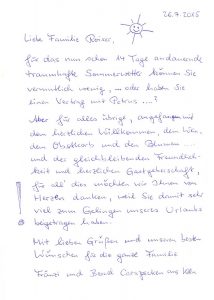 26.7.2015
Liebe Familie Reiser,
für das nun schon 14 Tage andauernde
traumhafte Sommerwetter können Sie
vermutlich wenig, ... oder haben Sie
einen Vertrag mit Petrus ....?
Aber für alles übrige, angefangen mit
dem herzlichen Willkommen, dem Wein,
dem Obstkorb und den Blumen ....
und der gleichbleibenden Freundlich-
keit und herzlichen Gastgeberschaft,
für all' dies möchten wir Ihnen von
Herzen danken, weil Sie damit sehr
viel zum Gelingen unseres Urlaubs
beigetragen haben.
Mit lieben Grüßen und unseren besten
Wünschen für die ganze Familie
und Bernd aus Köln